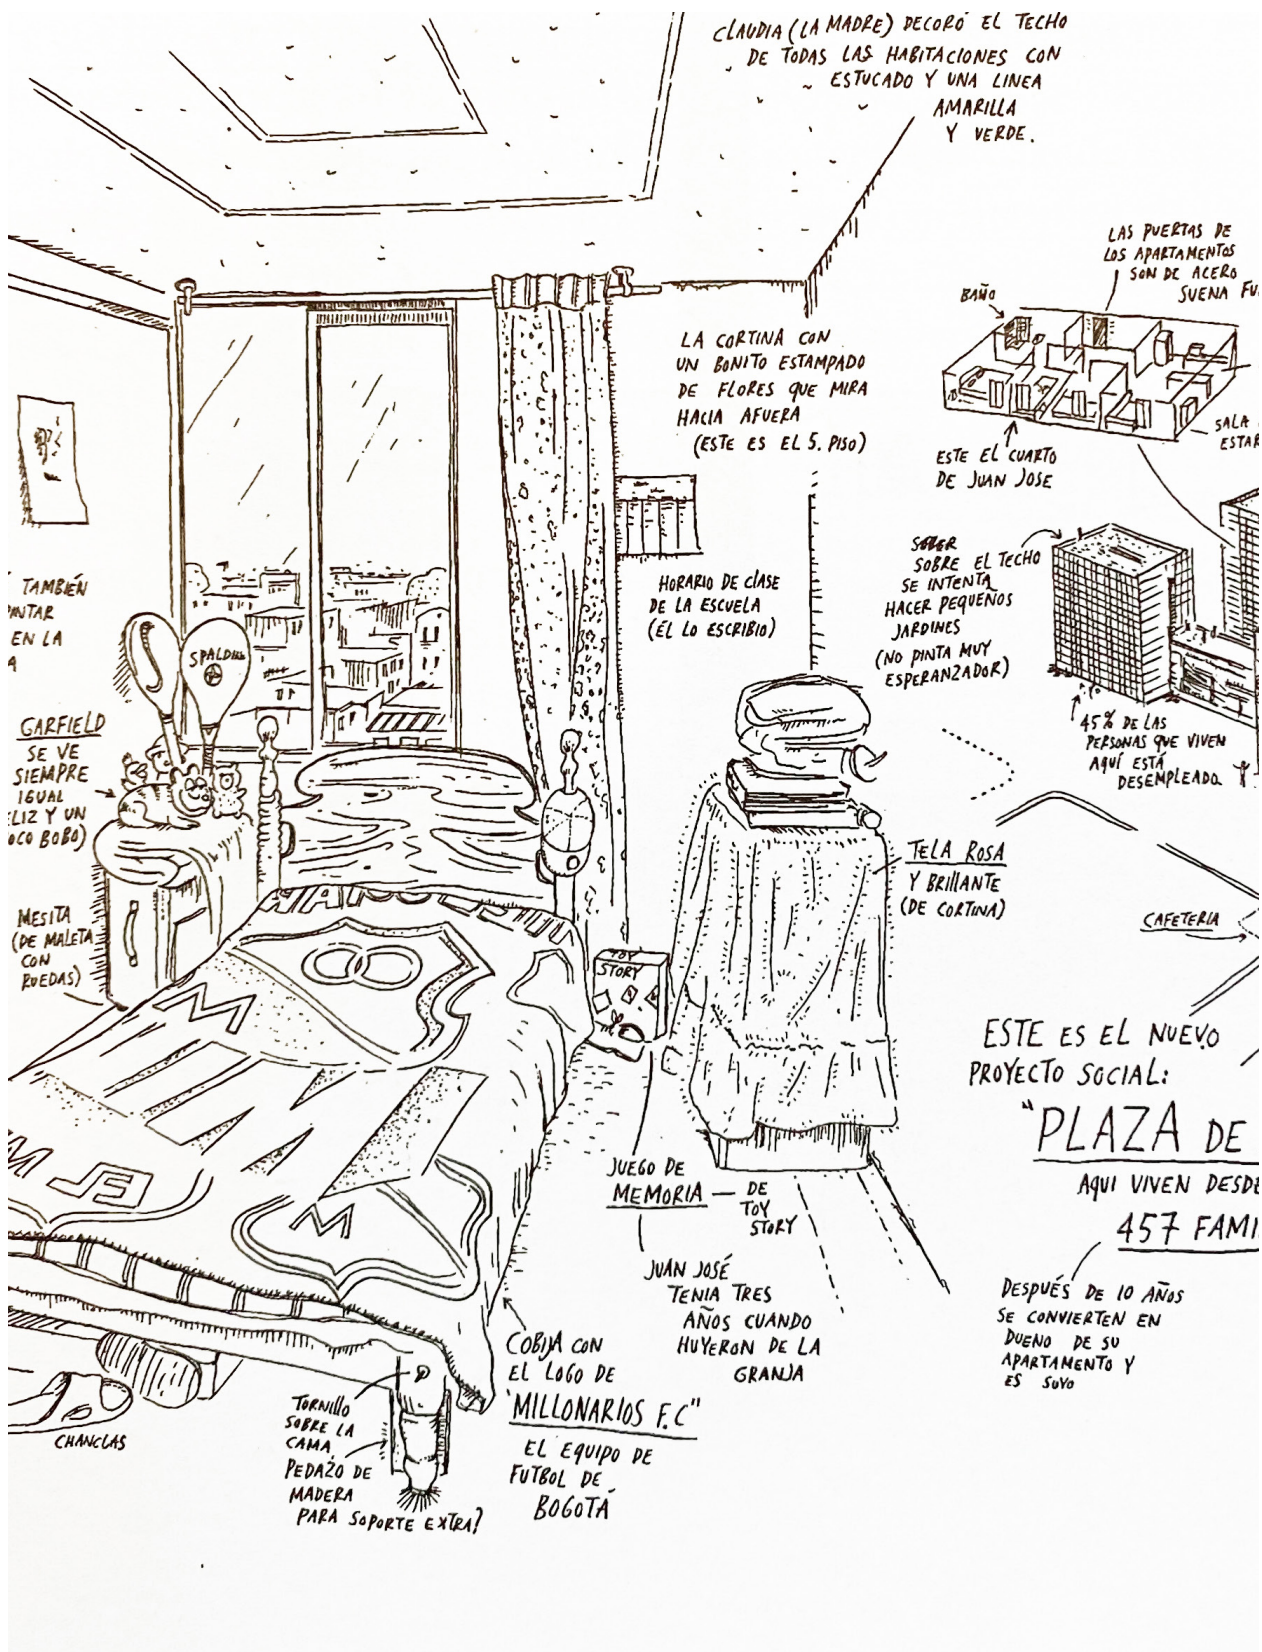 CLAUDIA (LA MADRE) DECORÓ EL TECHO
DE TODAS LAS HABITACIONES CON
ESTUCADO Y UNA LINEA
AMARILLA
Y VERDE.
LAS PUERTAS DE
LOS APARTAMENTOS
SON DE ACERO
SUENA FU
BAÑO
SALA
ESTAR
ESTE EL CUARTO
DE JUAN JOSE
LA CORTINA CON
UN BONITO ESTAMPADO
DE FLORES QUE MIRA
HACIA AFUERA
(ESTE ES EL 5. PISO)
HORARIO DE CLASE
DE LA ESCUELA
(ÉL LO ESCRIBIO)
SOBRE EL TECHO
SE INTENTA
HACER PEQUEÑOS
JARDINES
(NO PINTA MUY
ESPERANZADOR)
45% DE LAS
PERSONAS QUE VIVEN
AQUÍ ESTÁ
DESEMPLEADO
TAMBIÉN
NTAR
EN LA
A
SPALDING
GARFIELD
SE VE
SIEMPRE
IGUAL
ELIZ Y UN
OCO BOBO)
MESITA
(DE MALETA
CON
RUEDAS)
TELA ROSA
Y BRILLANTE
(DE CORTINA)
CAFETERIA
TOY
STORY
M
M
M
ESTE ES EL NUEVO
PROYECTO SOCIAL:
"PLAZA DE
AQUI VIVEN DESDE
457 FAMI
DESPUÉS DE 10 AÑOS
SE CONVIERTEN EN
DUENO DE SU
APARTAMENTO Y
ES SUYO
JUEGO DE
MEMORIA — DE
TOY
STORY
JUAN JOSÉ
TENIA TRES
AÑOS CUANDO
HUYERON DE LA
GRANJA
COBIJA CON
EL LOGO DE
"MILLONARIOS F.C"
EL EQUIPO DE
FUTBOL DE
BOGOTÁ
TORNILLO
SOBRE LA
CAMA
PEDAZO DE
MADERA
PARA SOPORTE EXTRA?
CHANCLAS